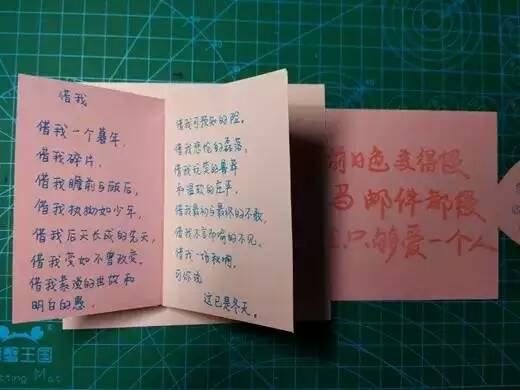 借我
借我一个暮年,
借我碎片,
借我瞻前与顾后,
借我执拗如少年,
借我后天长成的先天,
借我变如不曾改变。
借我素淡的世故和
明白的愚,
借我可预知的险。
借我悲怆的磊落,
借我玩笑的
和温软的庄严。
借我最初与最终的不敢,
借我不言而喻的不见。
借我一场秋啊,
可你说
这已是冬天。
前日色变得慢
马 邮件都慢
只够爱一个人
王国
tting Mat